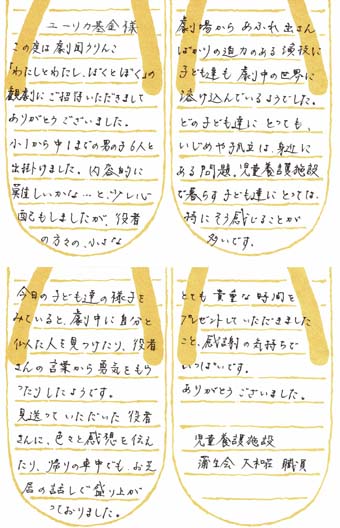 ユーリカ基金 様
この度は劇団うりんこ
「わたしとわたし、ぼくとぼく」の
観劇にご招待いただきまして
ありがとうございました。
小1から中1までの男の子6人と
出掛けました。内容的に
難しいかな…と、少し心
配もしましたが、役者
の方々の、小さな
劇場からあふれ出さん
ばかりの迫力のある演技に
子ども達も劇中の世界に
溶け込んでいるようでした。
どの子ども達にとっても、
いじめや孤立は、身近に
ある問題。児童養護施設
で暮らす子ども達にとっては、
特にそう感じることが
多いです。
今日の子ども達の様子を
みていると、劇中に自分と
似た人を見つけたり、役者
さんの言葉から勇気をもら
ったりしたようです。
見送っていただいた役者
さんに、色々と感想を伝え
たり、帰りの車中でも、お芝
居の話しで盛り上が
っておりました。
とても貴重な時間を
プレゼントしていただきました
こと、感謝の気持ちで
いっぱいです。
ありがとうございました。
児童養護施設
蒲生会 大和荘 職員